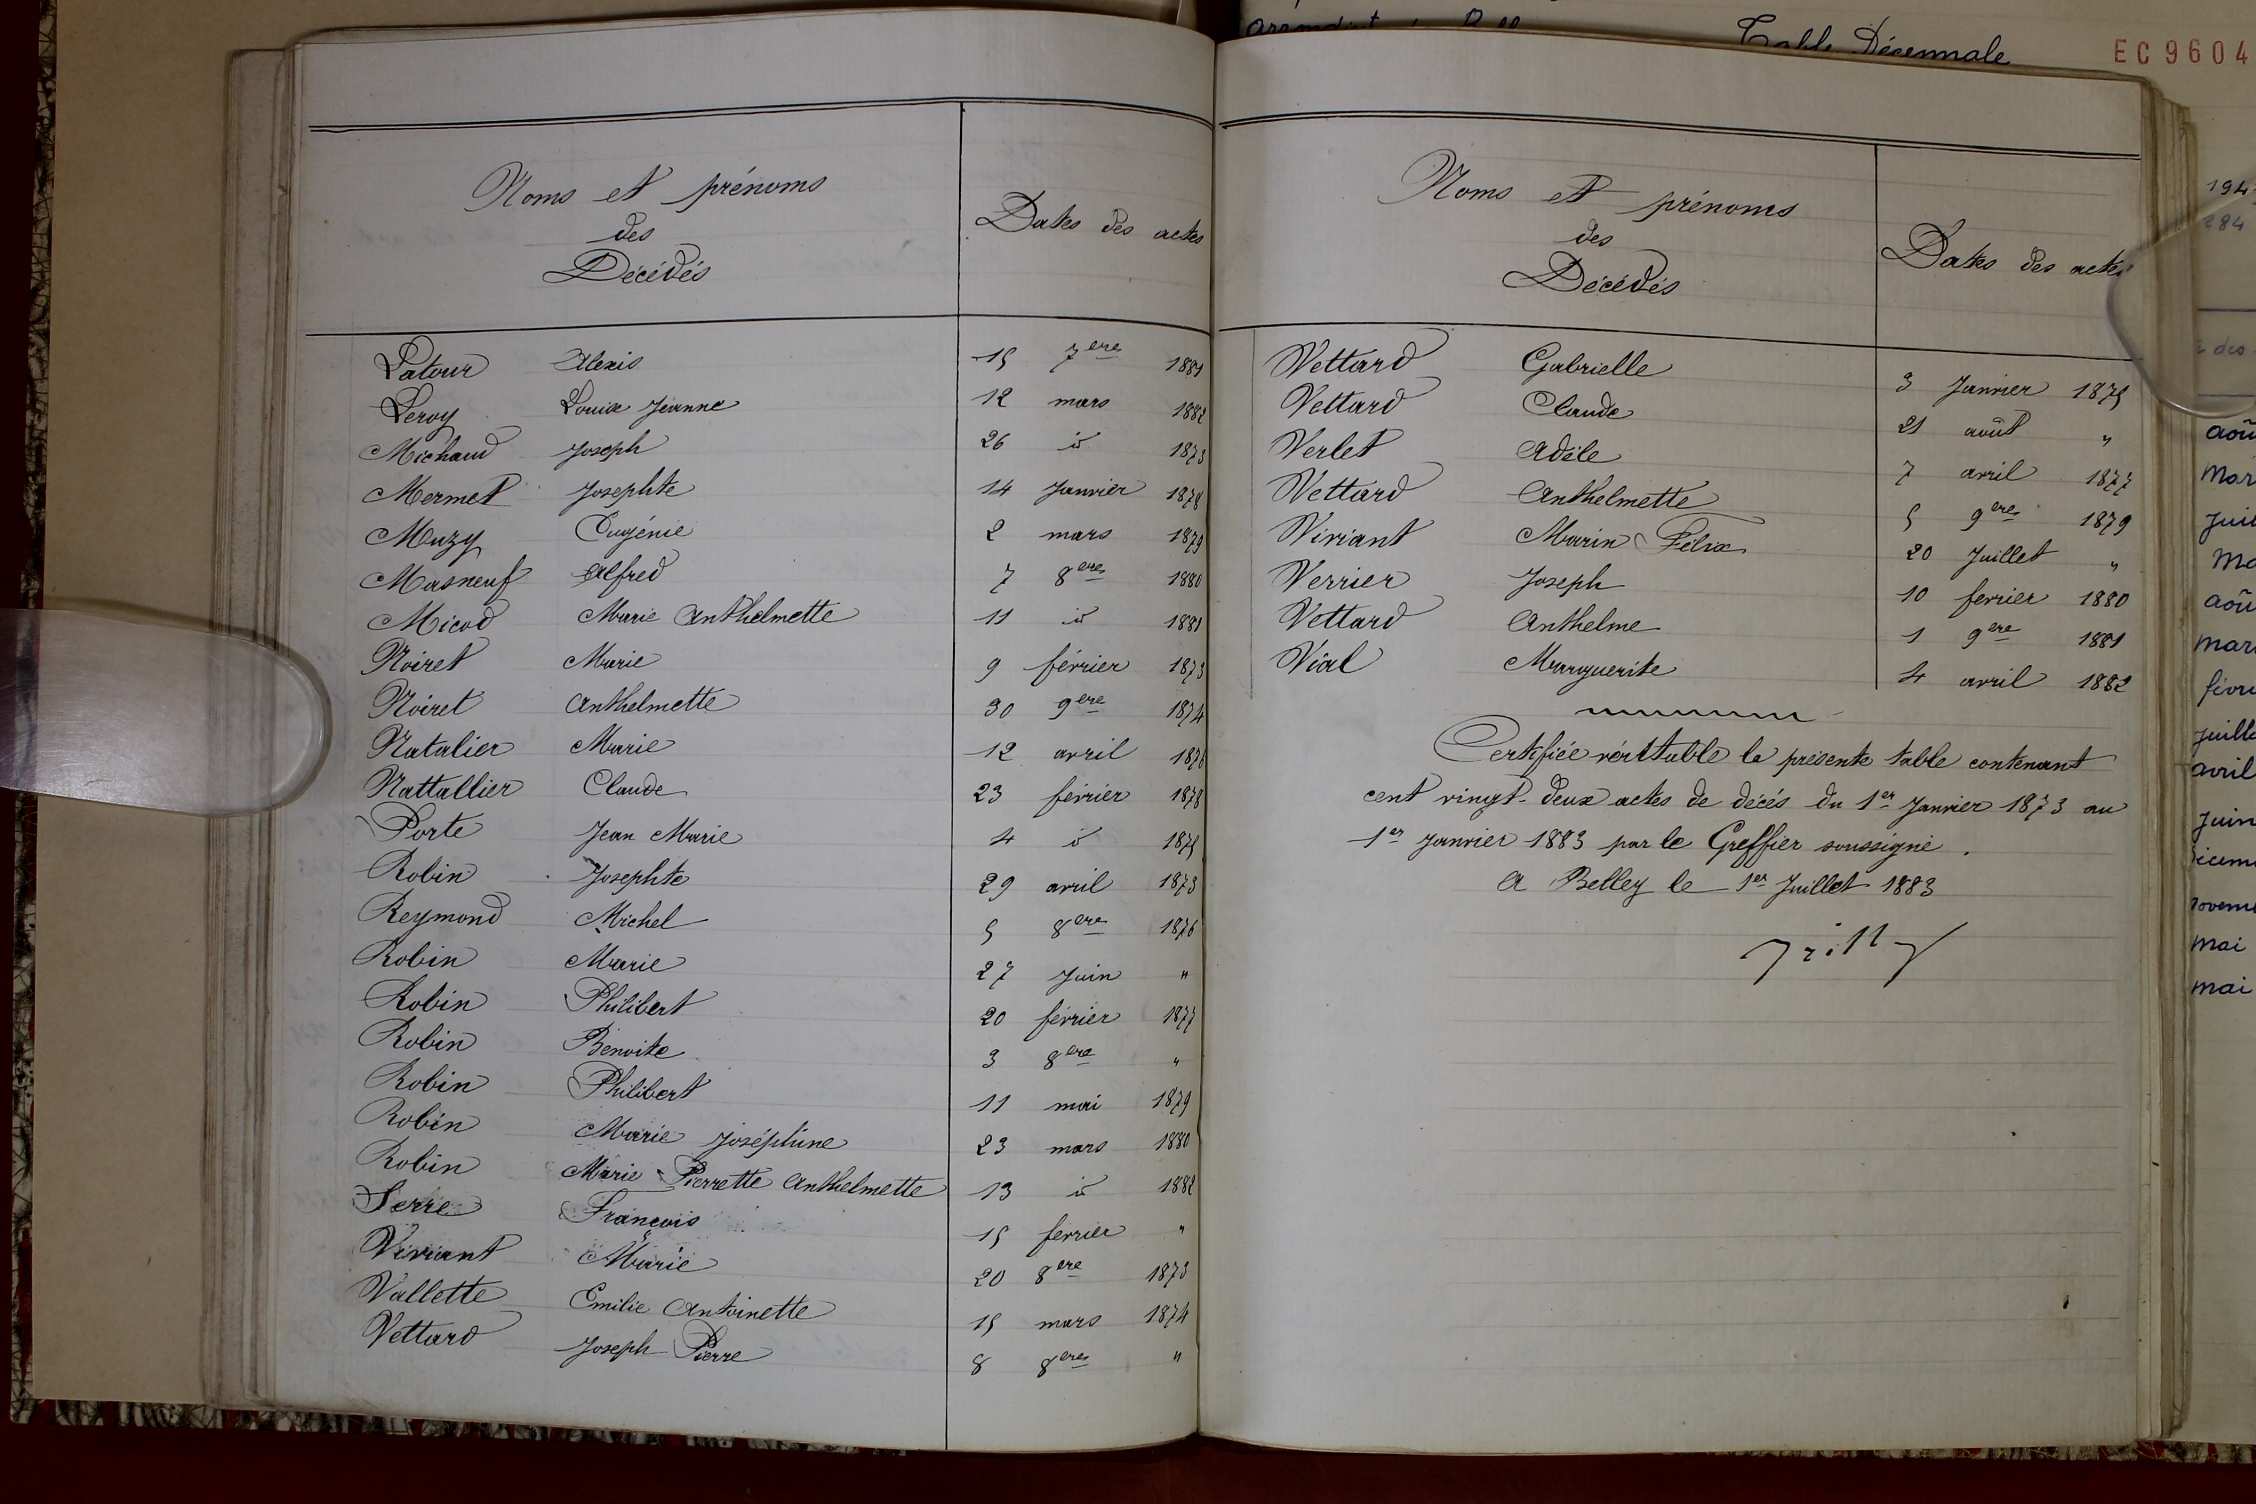 Table Décennale
EC 9604
Noms et prénoms
des
Décédés
Dates des actes
Latour Alexis 15 7ere 1881
Leroy Louise Jeanne 12 mars 1882
Michaud Joseph 26 id 1873
Mermet Josephte 14 Janvier 1878
Muzy Eugénie 2 mars 1879
Masneuf Alfred 7 8eres 1880
Micod Marie Anthelmette 11 id 1881
Noiret Marie 9 février 1873
Noiret Anthelmette 30 9ere 1874
Natalier Marie 12 avril 1876
Nattallier Claude 23 février 1878
Porte Jean Marie 4 id 1875
Robin Josephte 29 avril 1873
Reymond Michel 5 8ere 1876
Robin Marie 27 Juin "
Robin Philibert 20 février 1877
Robin Benoite 3 8ere "
Robin Philibert 11 mai 1879
Robin Marie Joséphine 23 mars 1880
Robin Marie Pierrette Anthelmette 13 id 1882
Serre François 15 fevrier "
Viviant Marie 20 8ere 1873
Vallette Emilie Antoinette 15 mars 1874
Vettard Joseph Pierre 8 8eres "
Noms et prénoms
des
Décédés
Dates des actes
Vettard Gabrielle 3 Janvier 1875
Vettard Claude 21 août "
Verlet Adèle 7 avril 1877
Vettard Anthelmette 5 9eres 1879
Viviant Marin Félix 20 Juillet "
Verrier Joseph 10 fevrier 1880
Vettard Anthelme 1 9ere 1881
Vial Marguerite 4 avril 1882
Certifiée véritable la présente table contenant
cent vingt-deux actes de décés du 1er Janvier 1873 au
1er Janvier 1883 par le Greffier soussigné.
A Belley le 1er Juillet 1883
194
284
des
aoû
mar
juil
ma
aoû
mar
févri
juille
avril
juin
décem
novem
mai
mai